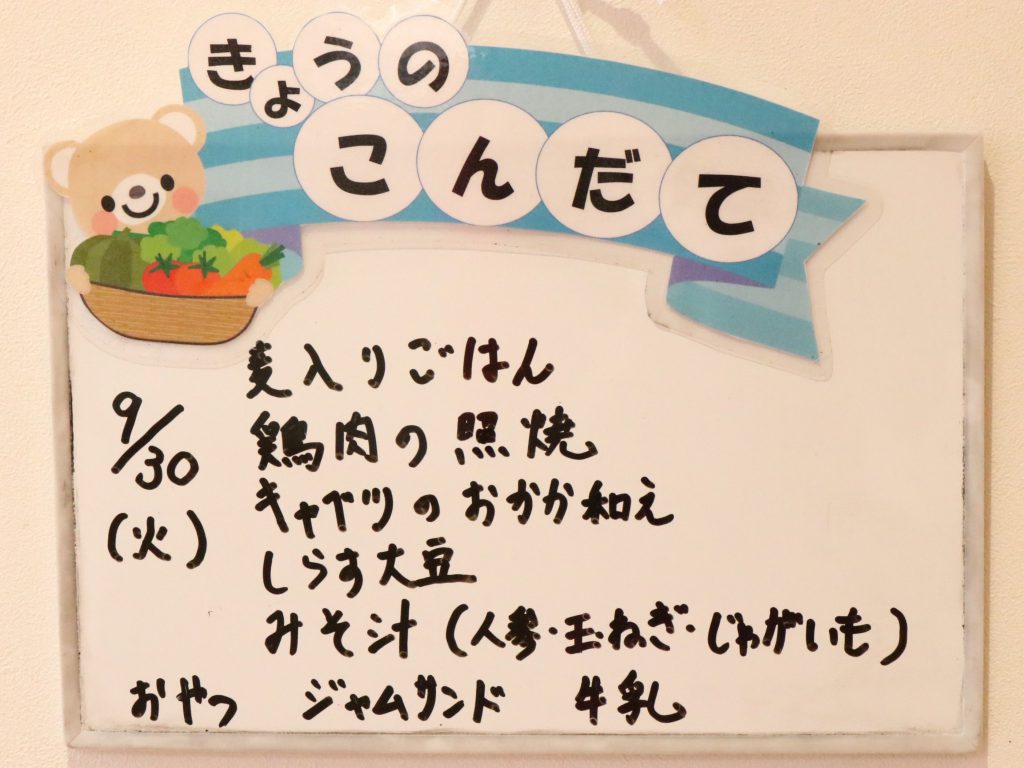 きょうの
こんだて
麦入りごはん
9/30 鶏肉の照焼
キャベツのおかか和え
(火) しらす大豆
みそ汁(人参・玉ねぎ・じゃがいも)
おやつ ジャムサンド 牛乳